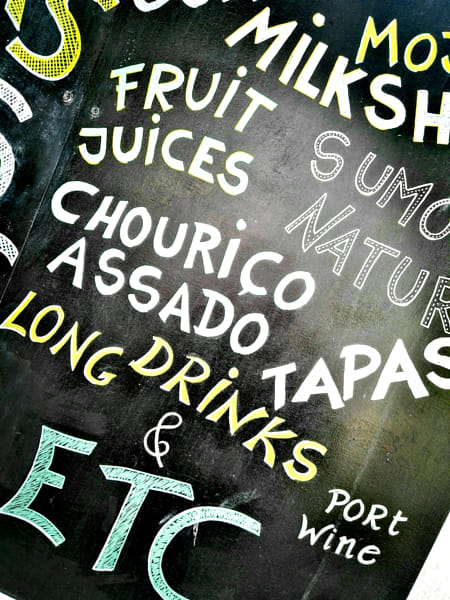 MILKSH
FRUIT
JUICES
SUMO
NATUR
CHOURIÇO
ASSADO
TAPAS
LONG DRINKS
& ETC
PORT
WINE